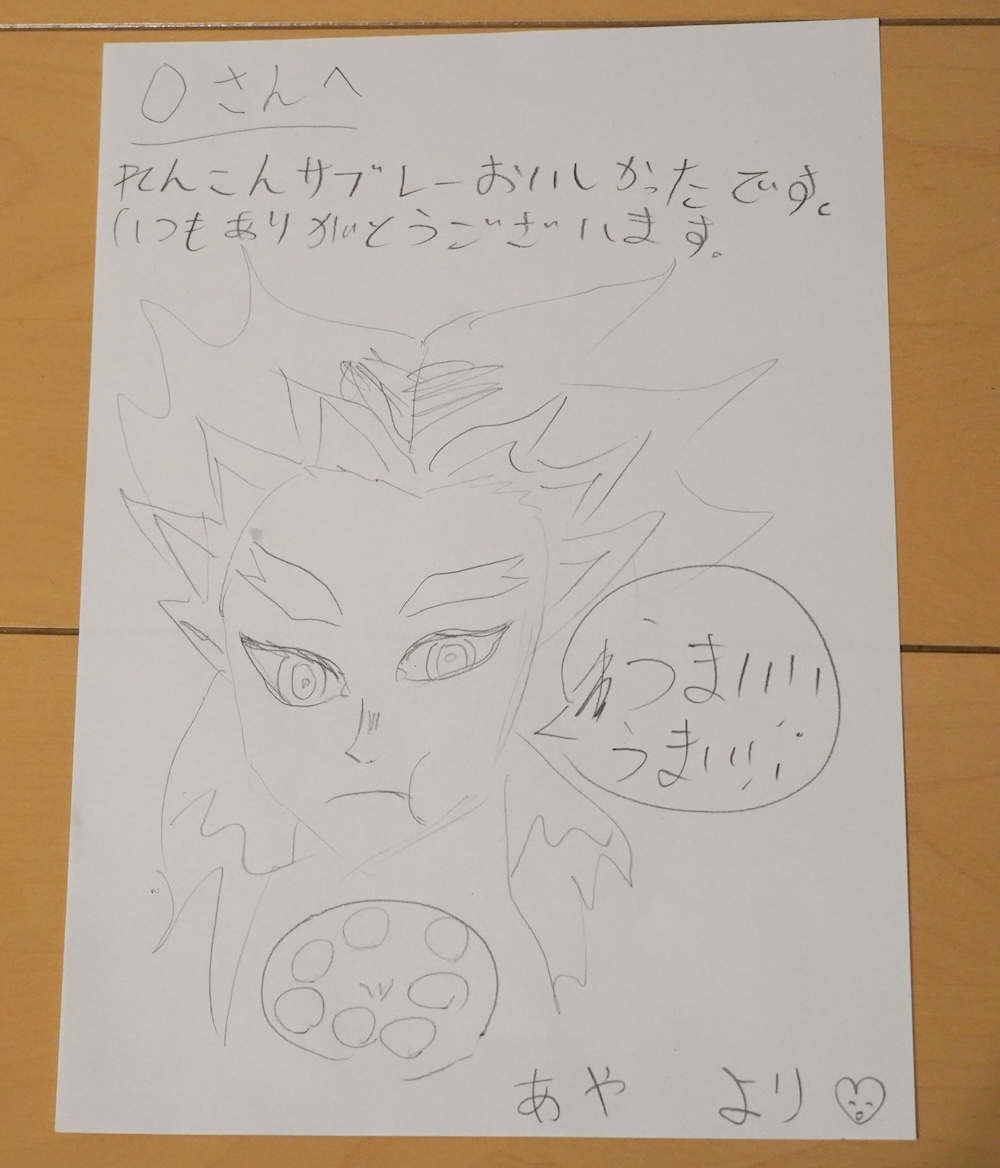 Oさんへ
れんこんサブレーおいしかったです。
いつもありがとうございます。
うまいいい
うまいいい
あや より